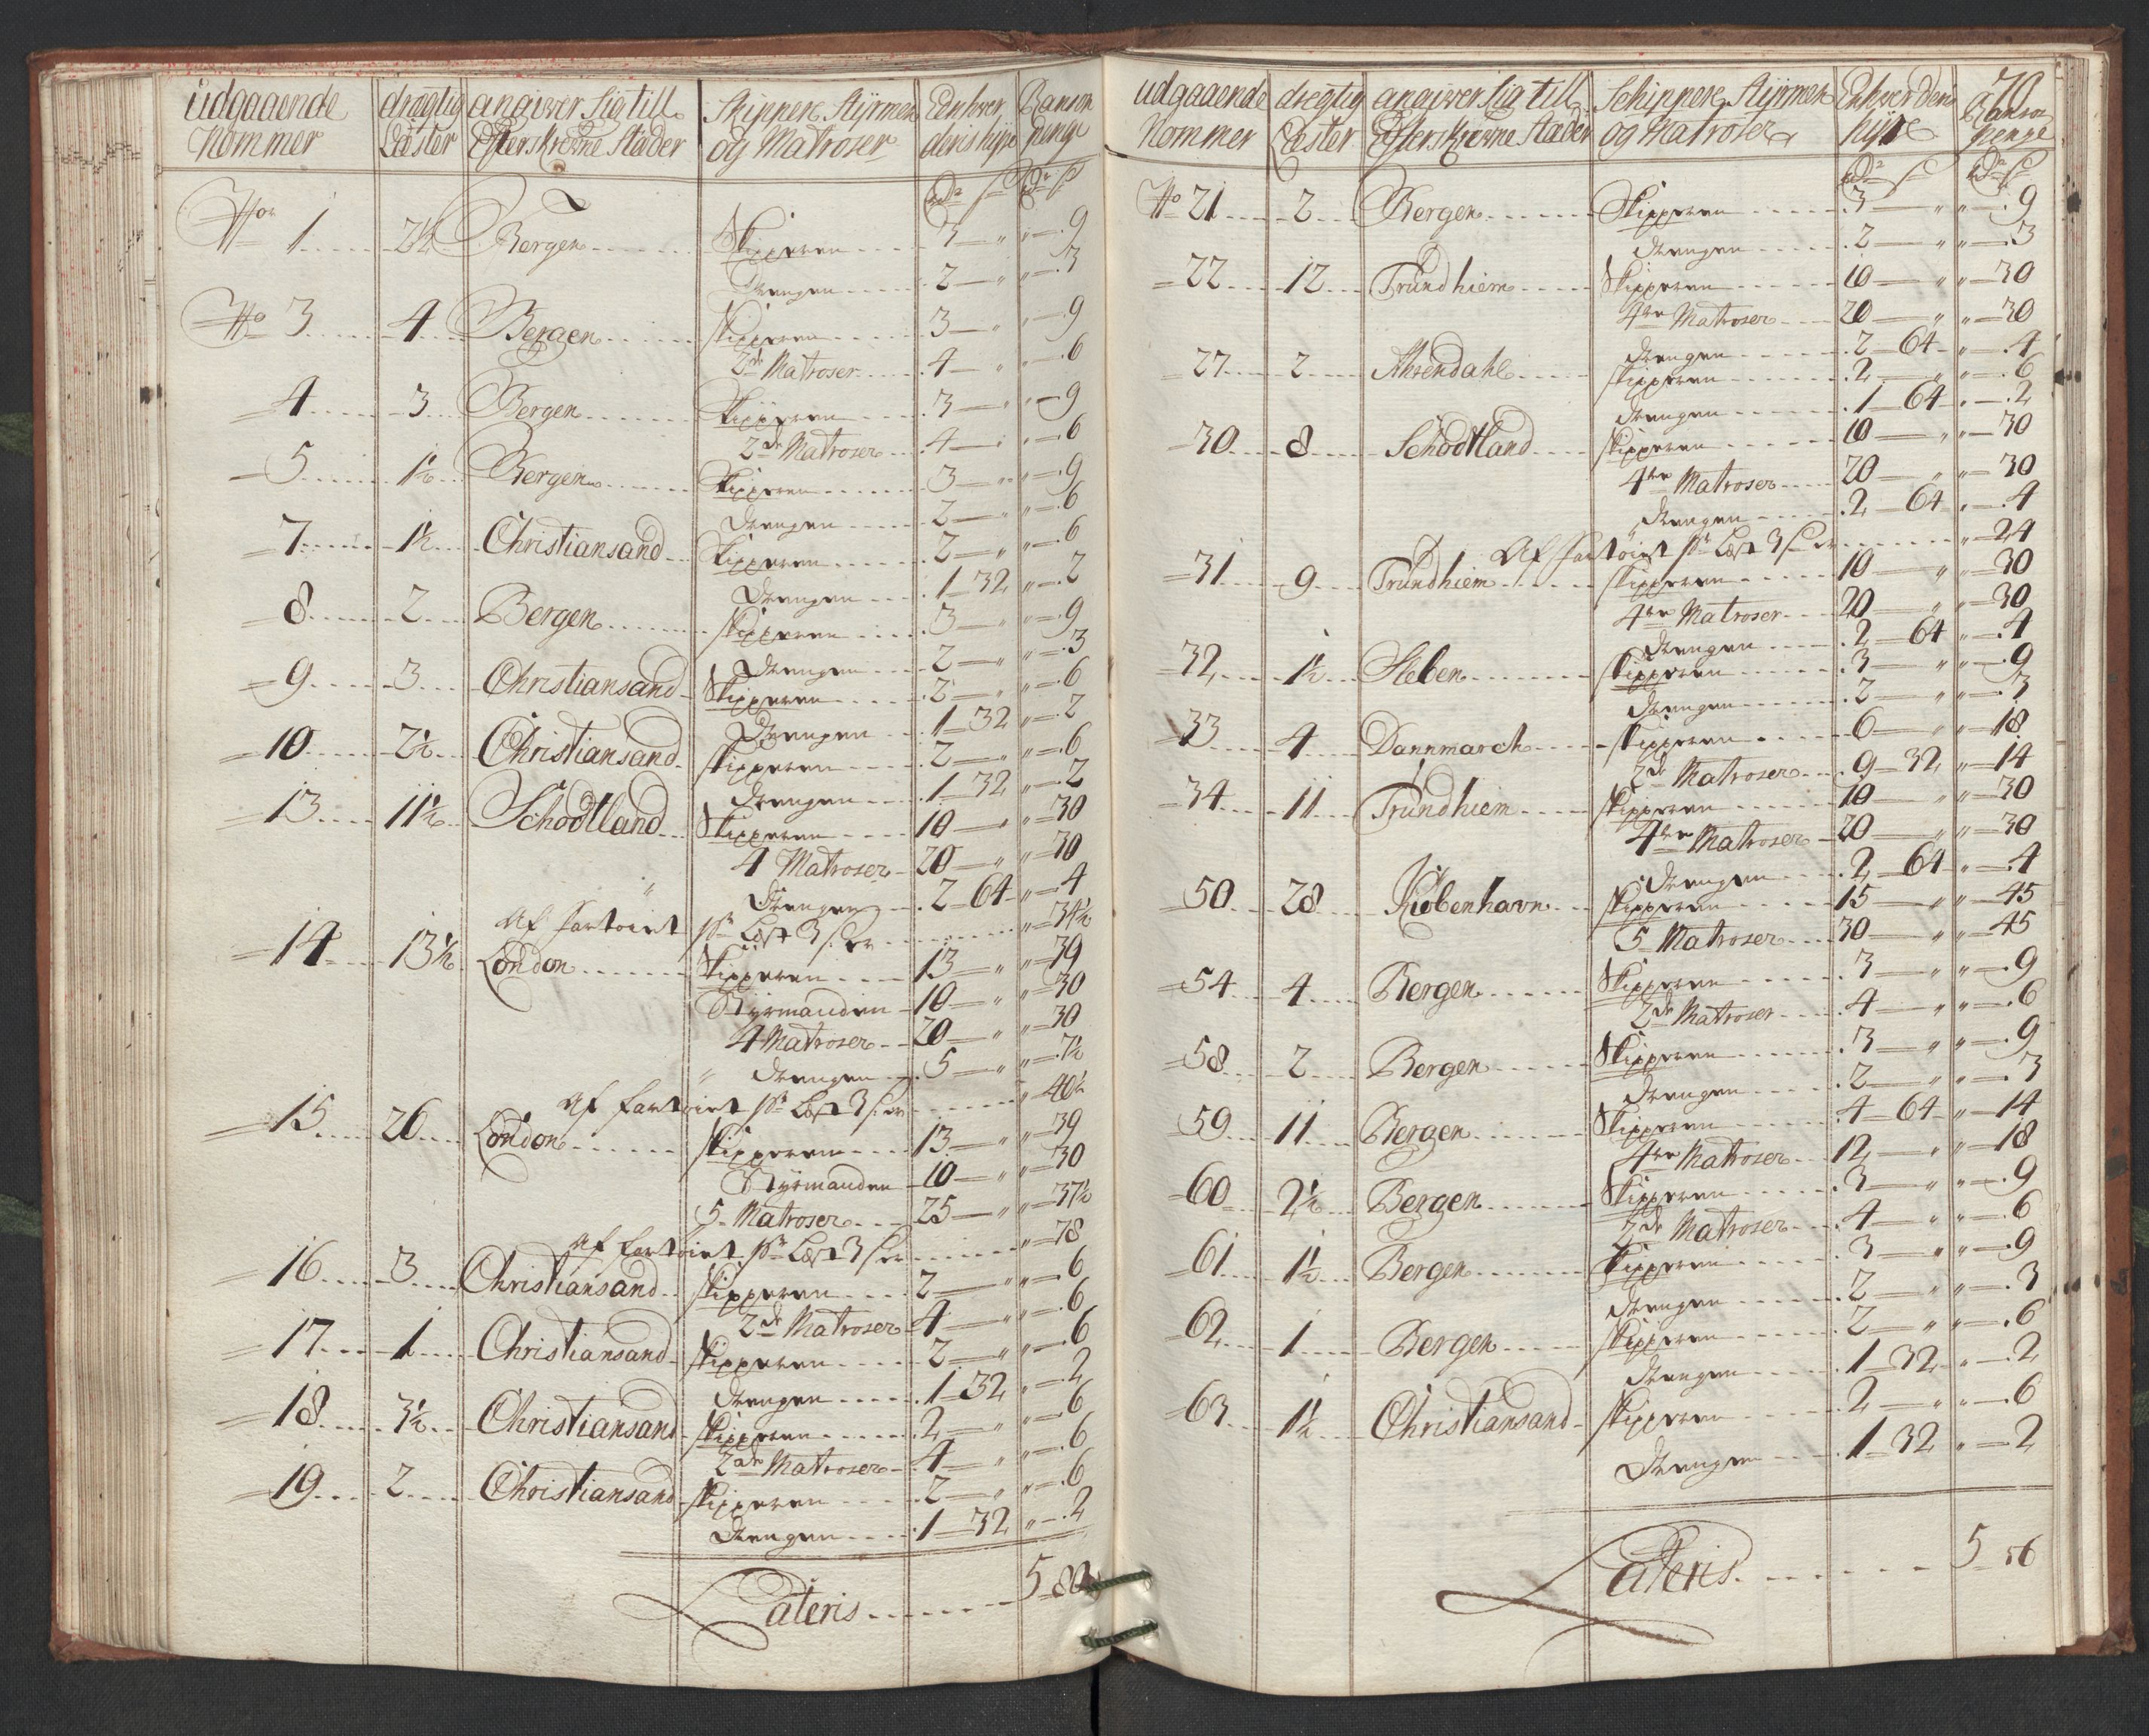 udgaaende drægtig angiver sig till Skippere Styrmen Enhver Ranson
Nommer Læster Efterskrevne Stæder og Matroser deris hyre penge
Rd s Rd s
No 1 2½ Bergen Skipperen 3 — " " — 9
Drengen 2 — " " — 3
No 3 4 Bergen Skipperen 3 — " " — 9
2de Matroser 4 — " " — 6
4 3 Bergen Skipperen 3 — " " — 9
2de Matroser 4 — " " — 6
5 1½ Bergen Skipperen 3 — " " — 9
Drengen 2 — " " — 6
7 1½ Christiansand Skipperen 2 — " " — 6
Drengen 1 — 32 " — 2
8 2 Bergen Skipperen 3 — " " — 9
Drengen 2 — " " — 3
9 3 Christiansand Skipperen 2 — " " — 6
Drengen 1 — 32 " — 2
10 2½ Christiansand Skipperen 2 — " " — 6
Drengen 1 — 32 " — 2
13 11½ Schodtland Skipperen 10 — " " — 30
4 Matroser 20 — " " — 30
Drengen 2 — 64 " — 4
Af Fartøiet pr Læst 3 s er " — 34½
14 13½ London Skipperen 13 — " " — 39
Styrmanden 10 — " " — 30
4 Matroser 20 — " " — 30
" Drengen 5 — " " — 7½
Af Fartøiet pr Læst 3 s er " 40½
15 26 London Skipperen 13 — " " — 39
Styrmanden 10 — " " — 30
5 Matroser 25 — " " — 37½
Af Fartøiet pr Læst 3 s er " — 78
16 3 Christiansand Skipperen 2 — " " — 6
2de Matroser 4 — " " — 6
17 1 Christiansand Skipperen 2 — " " — 6
Drengen 1 — 32 " — 2
18 3½ Christiansand Skipperen 2 — " " — 6
2de Matroser 4 — " " — 6
19 2 Christiansand Skipperen 2 — " " — 6
Drengen 1 — 32 " — 2
Lateris 5 — 80
70
udgaaende drægtig angiver sig till Schippere Styrmen Enhver deris Ranson
Nommer Læster Efterskrevne Stæder og Matroser hyre penge
Rd s Rd s
No 21 2 Bergen Skipperen 3 — " " — 9
Drengen 2 — " " — 3
22 12 Trundhiem Skipperen 10 — " " — 30
4re Matroser 20 — " " — 30
Drengen 2 — 64 " — 4
27 2 Ahrendahl Skipperen 2 — " " — 6
Drengen 1 — 64 " — 2
30 8 Schodtland Skipperen 10 — " " — 30
4re Matroser 20 — " " — 30
Drengen 2 — 64 " — 4
Af Fartøiet pr Læst 3 s er " — 24
31 9 Trundhiem Skipperen 10 — " " — 30
4re Matroser 20 — " " — 30
Drengen 2 — 64 " — 4
32 1½ Skipperen 3 — " " — 9
Drengen 2 — " " — 3
33 4 Dannmarch Skipperen 6 — " " — 18
2de Matroser 9 — 32 " — 14
34 11 Trundhiem Skipperen 10 — " " — 30
4re Matroser 20 — " " — 30
Drengen 2 — 64 " — 4
50 28 Kiøbenhavn Skipperen 15 — " " — 45
5 Matroser 30 — " " — 45
54 4 Bergen Skipperen 3 — " " — 9
2de Matroser 4 — " " — 6
58 2 Bergen Skipperen 3 — " " — 9
Drengen 2 — " " — 3
59 11 Bergen Skipperen 4 — 64 " — 14
4re Matroser 12 — " " — 18
60 2½ Bergen Skipperen 3 — " " — 9
2de Matroser 4 — " " — 6
61 1½ Bergen Skipperen 3 — " " — 9
Drengen 2 — " " — 3
62 1 Bergen Skipperen 2 — " " — 6
Drengen 1 — 32 " — 2
63 1½ Christiansand Skipperen 2 — " " — 6
Drengen 1 — 32 " — 2
Lateris 5 56